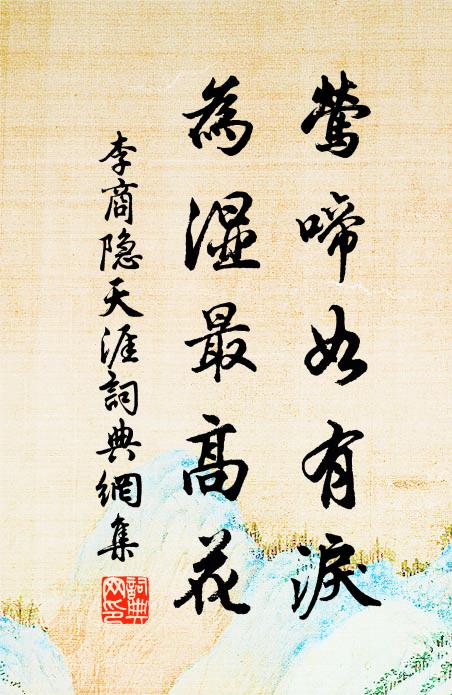 鶯啼如有淚
為濕最高花
李商隐天涯詞典網集
詞典
网印